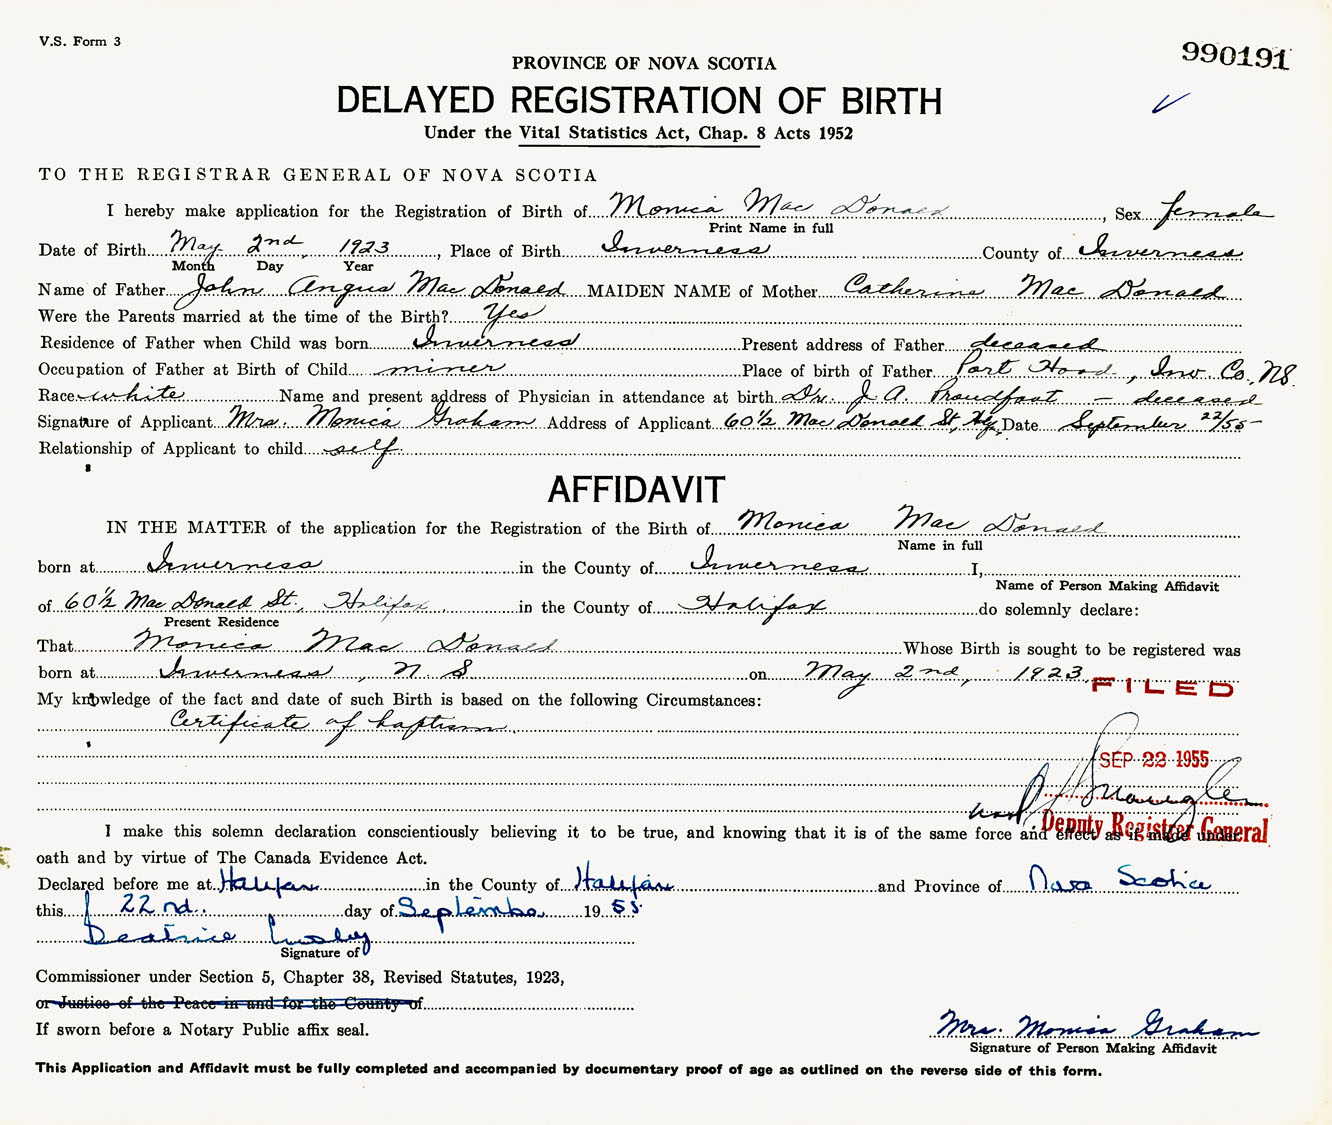 V.S. Form 3
990191
PROVINCE OF NOVA SCOTIA
DELAYED REGISTRATION OF BIRTH
Under the Vital Statistics Act, Chap. 8 Acts 1952
TO THE REGISTRAR GENERAL OF NOVA SCOTIA
I hereby make application for the Registration of Birth of Monica Mac Donald, Sex female
Print Name in full
Date of Birth May 2nd, 1923, Place of Birth Inverness County of Inverness
Month Day Year
Name of Father John Angus Mac Donald MAIDEN NAME of Mother Catherine Mac Donald
Were the Parents married at the time of the Birth? Yes
Residence of Father when Child was born Inverness Present address of Father deceased
Occupation of Father at Birth of Child miner Place of birth of Father Port Hood, Inv. Co., N.S.
Race white Name and present address of Physician in attendance at birth Dr. J. A. Proudfoot - deceased
Signature of Applicant Mrs. Monica Graham Address of Applicant 60½ Mac Donald St, Hfx, Date September 22/55-
Relationship of Applicant to child self
AFFIDAVIT
IN THE MATTER of the application for the Registration of the Birth of Monica Mac Donald
Name in full
born at Inverness in the County of Inverness I,
Name of Person Making Affidavit
of 60½ Mac Donald St, Halifax, in the County of Halifax do solemnly declare:
Present Residence
That Monica Mac Donald Whose Birth is sought to be registered was
born at Inverness, N. S on May 2nd, 1923
FILED
My knowledge of the fact and date of such Birth is based on the following Circumstances:
Certificate of baptism.
SEP 22 1955
Deputy Registrar General
I make this solemn declaration conscientiously believing it to be true, and knowing that it is of the same force and effect as if made under
oath and by virtue of The Canada Evidence Act.
Declared before me at Halifax in the County of Halifax and Province of Nova Scotia
this 22nd. day of September 1955
Beatrice
Signature of
Commissioner under Section 5, Chapter 38, Revised Statutes, 1923,
or Justice of the Peace in and for the County of
If sworn before a Notary Public affix seal.
Mrs. Monica Graham
Signature of Person Making Affidavit
This Application and Affidavit must be fully completed and accompanied by documentary proof of age as outlined on the reverse side of this form.